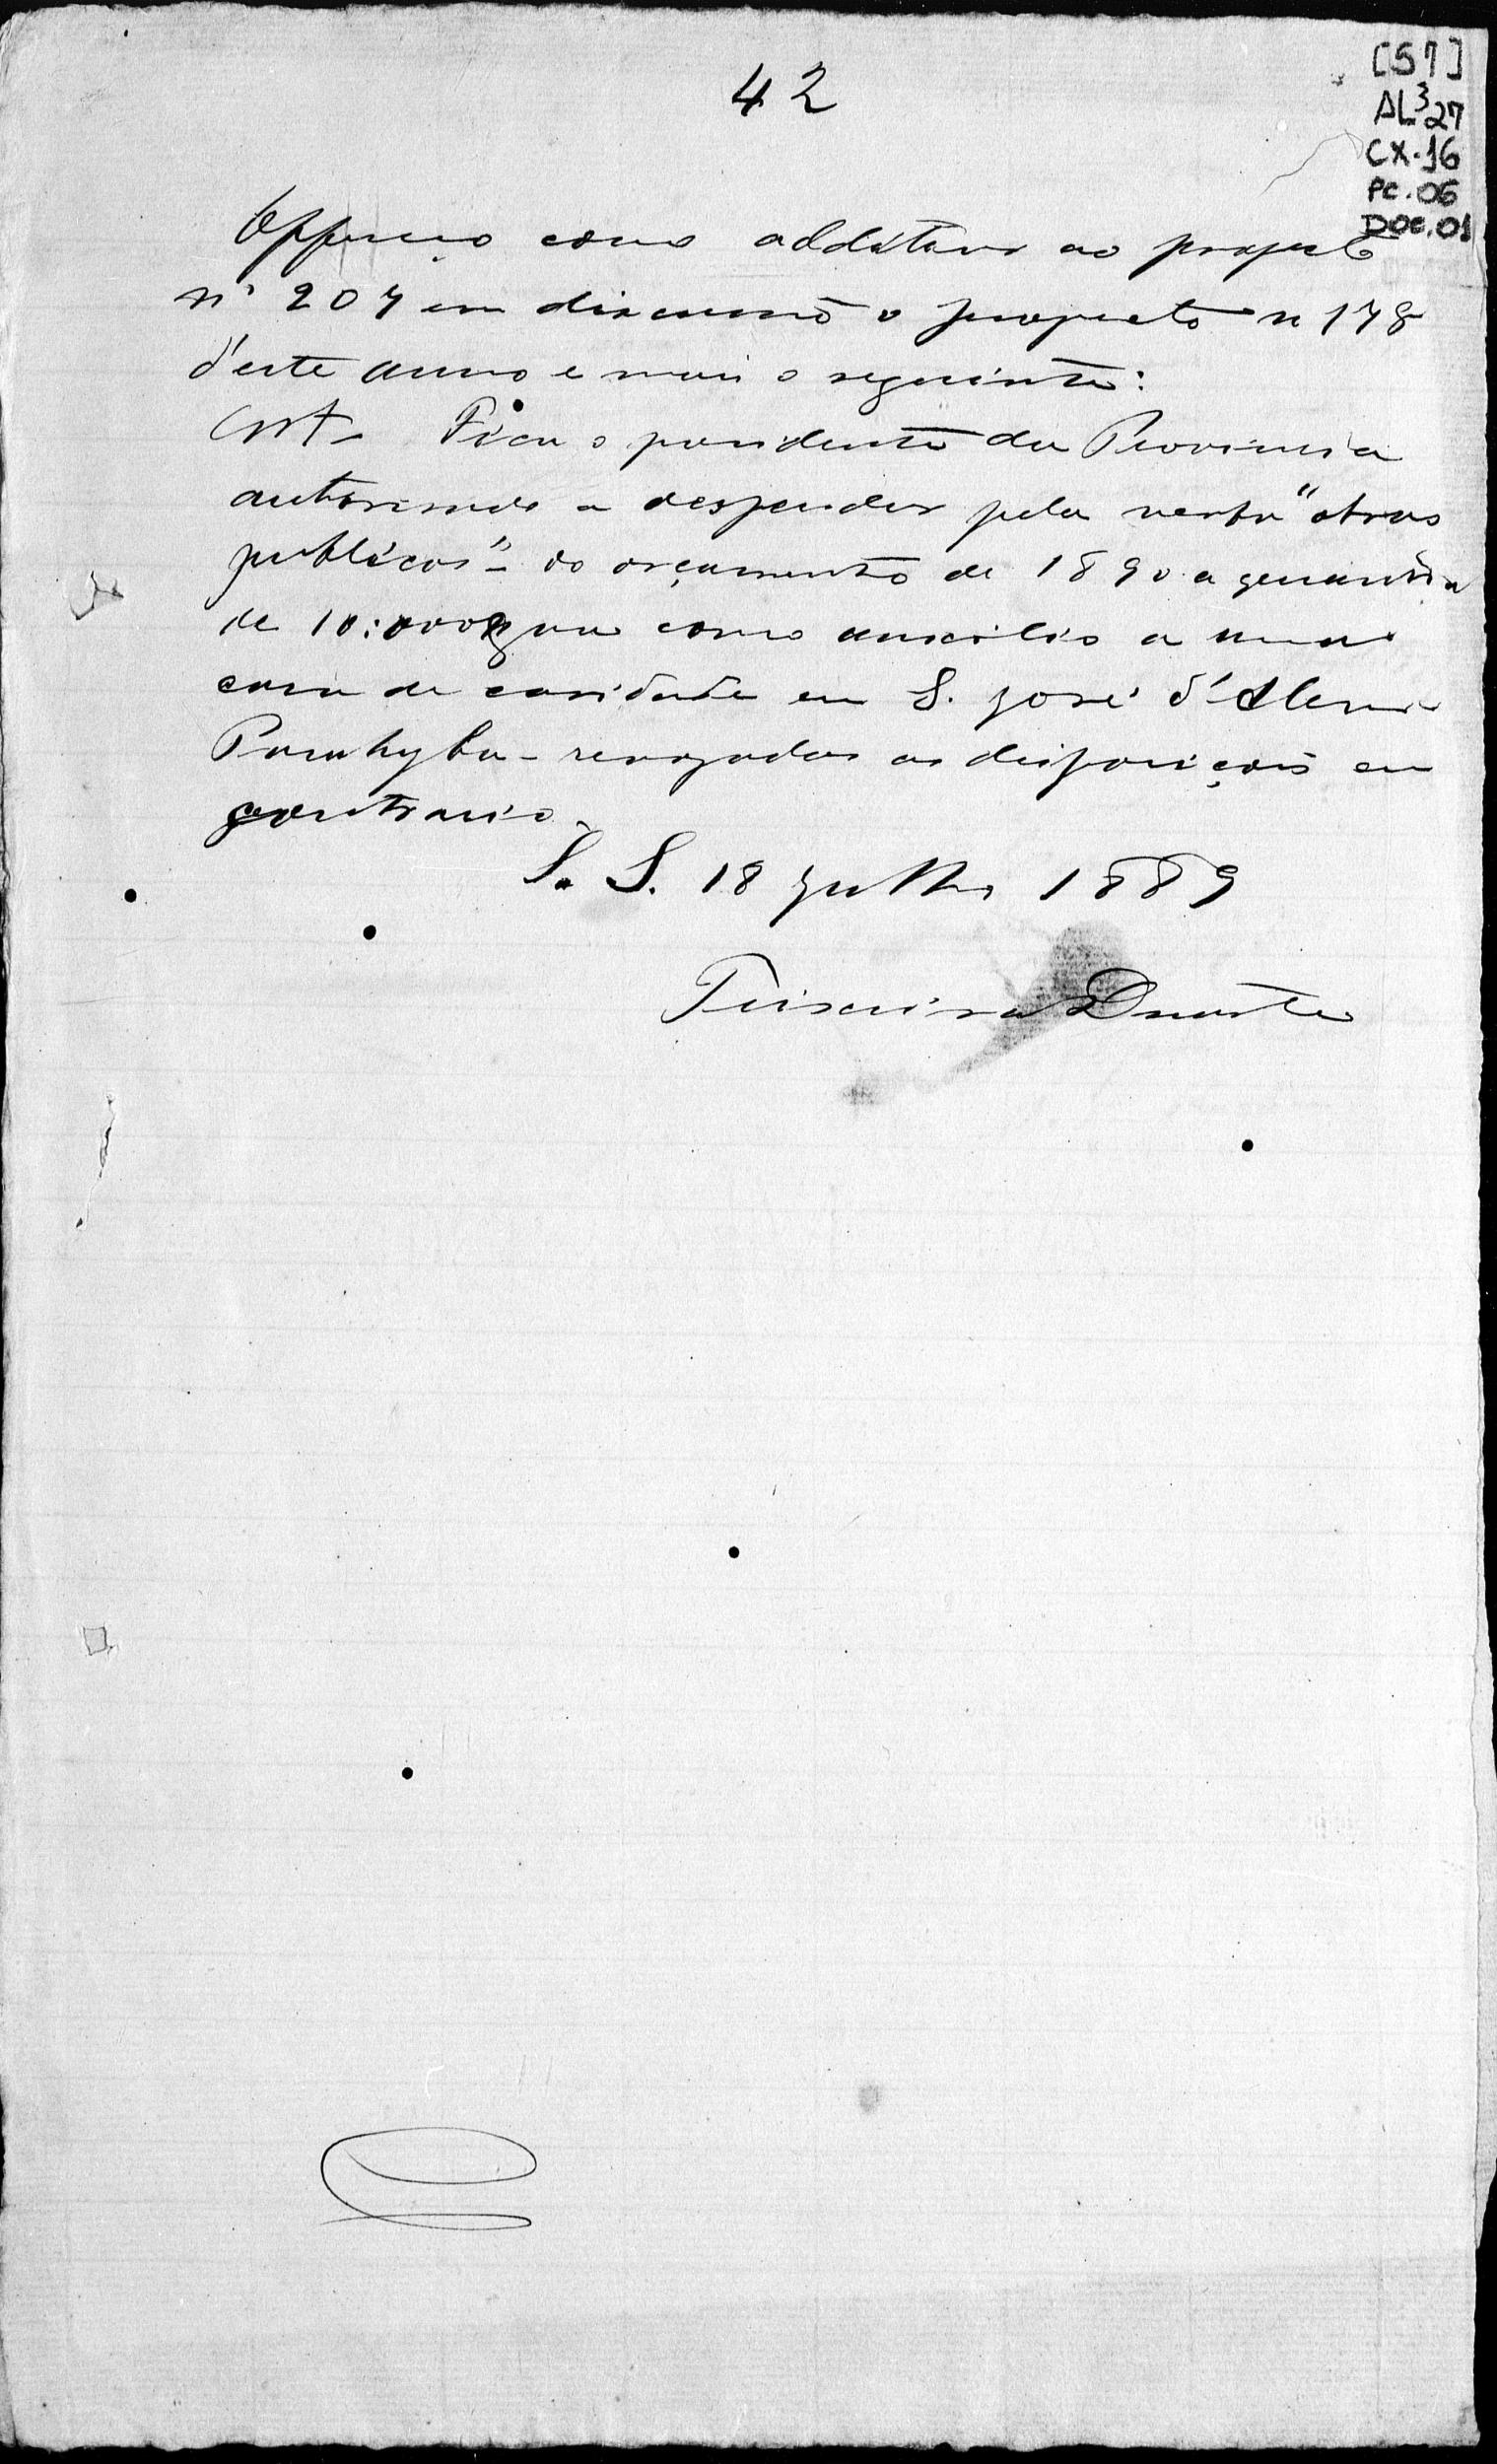 42
[57]
AL³27
CX.16
PC.06
DOC.01
Offereço como additivo ao projecto
nº 207 em discussão o projecto n 178
d'este anno e mais o seguinte:
Art- Fica o presidente da Provincia
autorisado a despender pela verba "obras
publicas"- do orçamento de 1890 a quantia
de 10:000$ como auxilio a uma
casa de caridade em S. José d'Alem
Parahyba- revogadas as disposições em
contrario.
S. S. 18 julho 1889
Teixeira Duarte